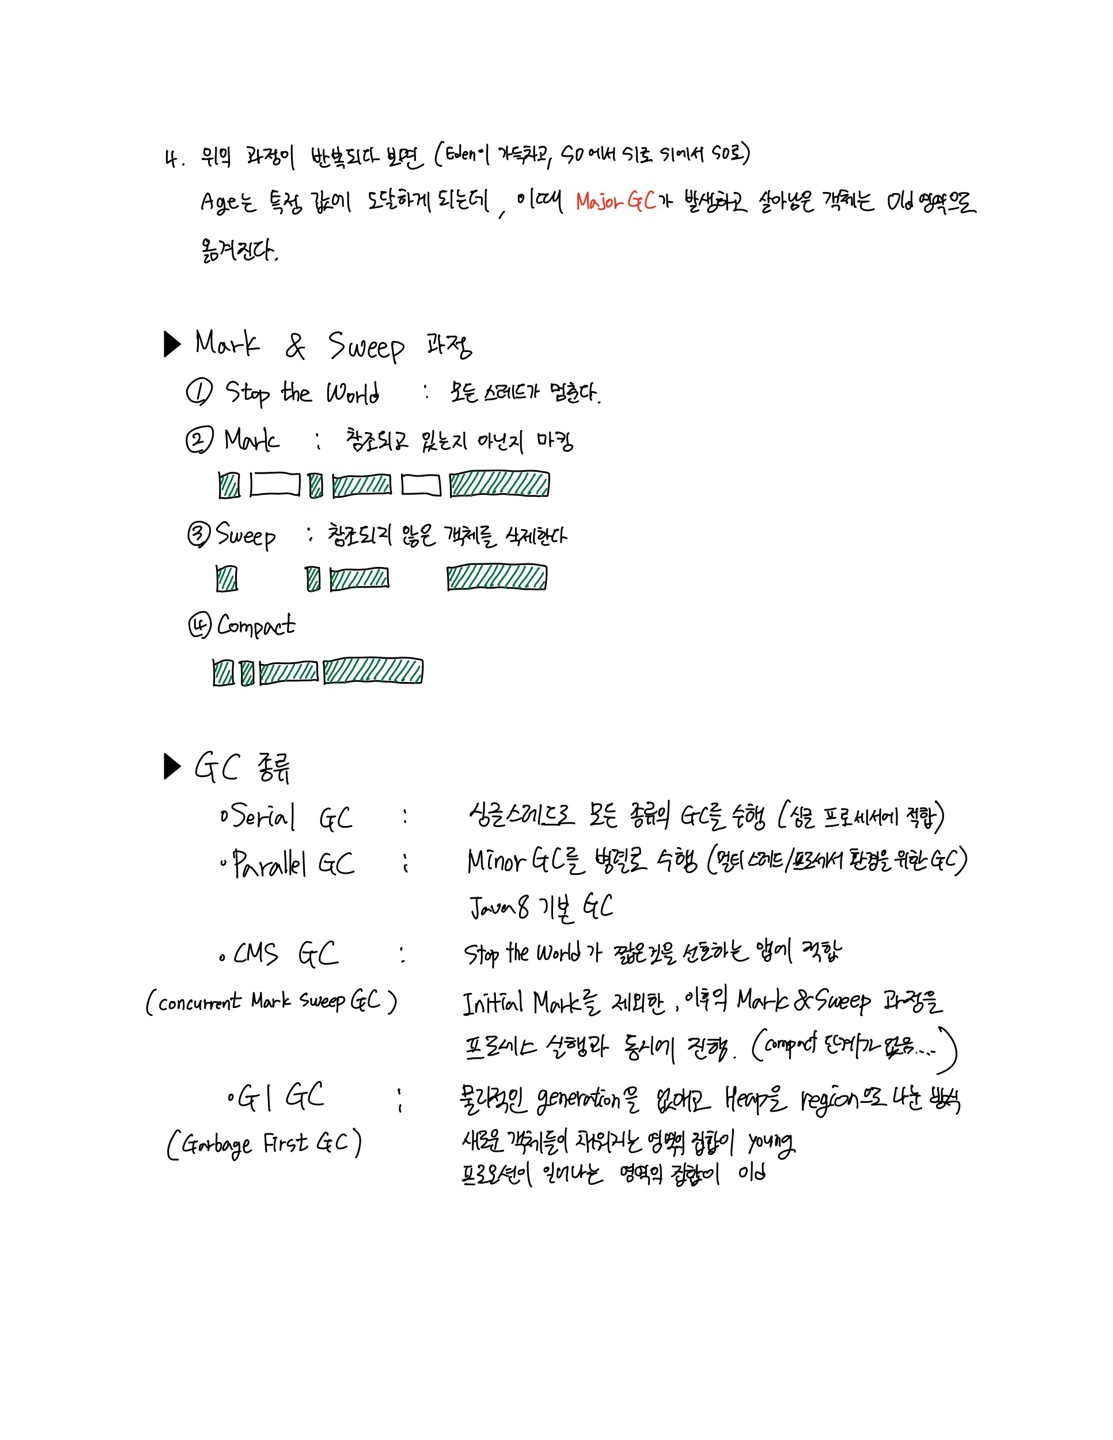 4. 위의 과정이 반복되다 보면 (Eden이 가득차고, S0에서 S1로 S1에서 S0로)
Age는 특정 값에 도달하게 되는데, 이때 Major GC가 발생하고 살아남은 객체는 Old 영역으로
옮겨진다.
▶ Mark & Sweep 과정
① Stop the World : 모든 스레드가 멈춘다.
② Mark : 참조되고 있는지 아닌지 마킹
③ Sweep : 참조되지 않은 객체를 삭제한다
④ Compact
▶ GC 종류
• Serial GC : 싱글스레드로 모든 종류의 GC를 수행 (싱글 프로세서에 적합)
• Parallel GC : Minor GC를 병렬로 수행 (멀티 스레드/프로세서 환경을 위한 GC)
Java8 기본 GC
• CMS GC : Stop the World가 짧은것을 선호하는 앱에 적합
(concurrent Mark Sweep GC) Initial Mark를 제외한, 이후의 Mark & Sweep 과정을
프로세스 실행과 동시에 진행. (compact 단계가 없음....)
• G1 GC : 물리적인 generation을 없애고 Heap을 region으로 나눈 방식
(Garbage First GC) 새로운 객체들이 채워지는 영역의 집합이 young
프로모션이 일어나는 영역의 집합이 old